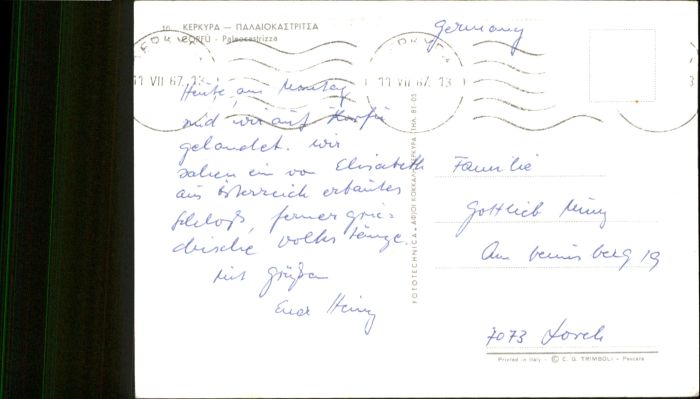 10 ΚΕΡΚΥΡΑ — ΠΑΛΑΙΟΚΑΣΤΡΙΤΣΑ
CORFU - Paleocastrizza
Germany
11 VII 67. 13
11 VII 67. 13
3
Heute am Montag
sind wir auf Korfu
gelandet. Wir
sahen ein von Elisabeth
aus Österreich erbautes
Schloß, ferner grie-
chische Volkstänze.
Mit Grüßen
Euer Heinz
FOTOTECHNICA ΚΕΡΚΥΡΑ ΤΗΛ. 81-05
Familie
Gottlieb
Am berg 19
7073 Lorch
Printed in Italy - © C. G. TRIMBOLI - Pescara